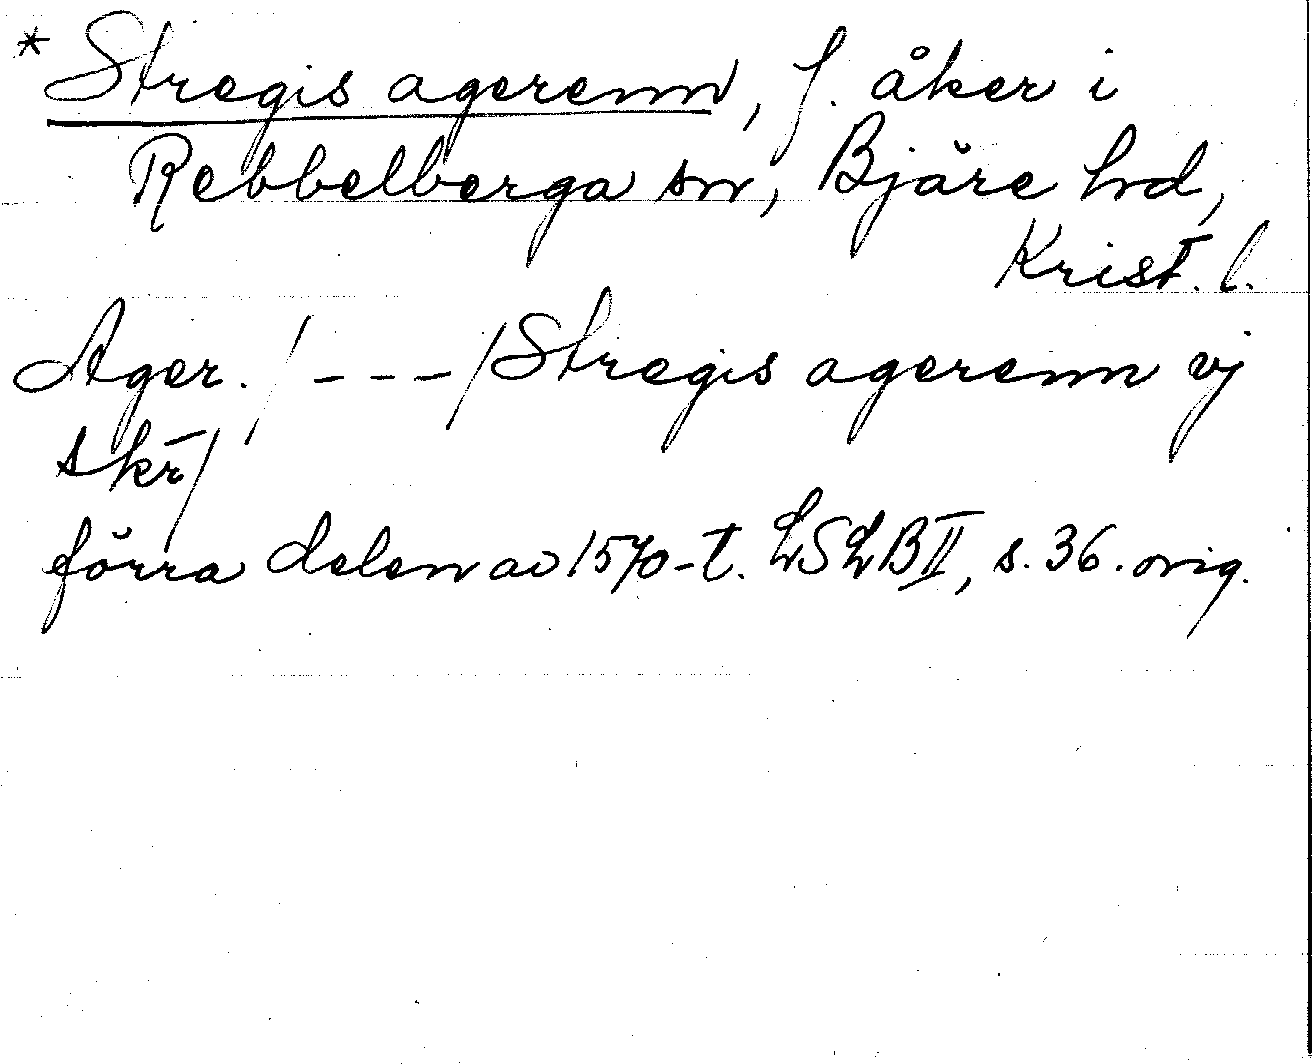 * Stregis agerenn, f. åker i
Rebbelberga sn, Bjäre hd,
Krist. l.
Ager. / - - - / Stregis agerenn vj
skr /
förra delen av 1570-t. LSLB II, s. 36. orig.